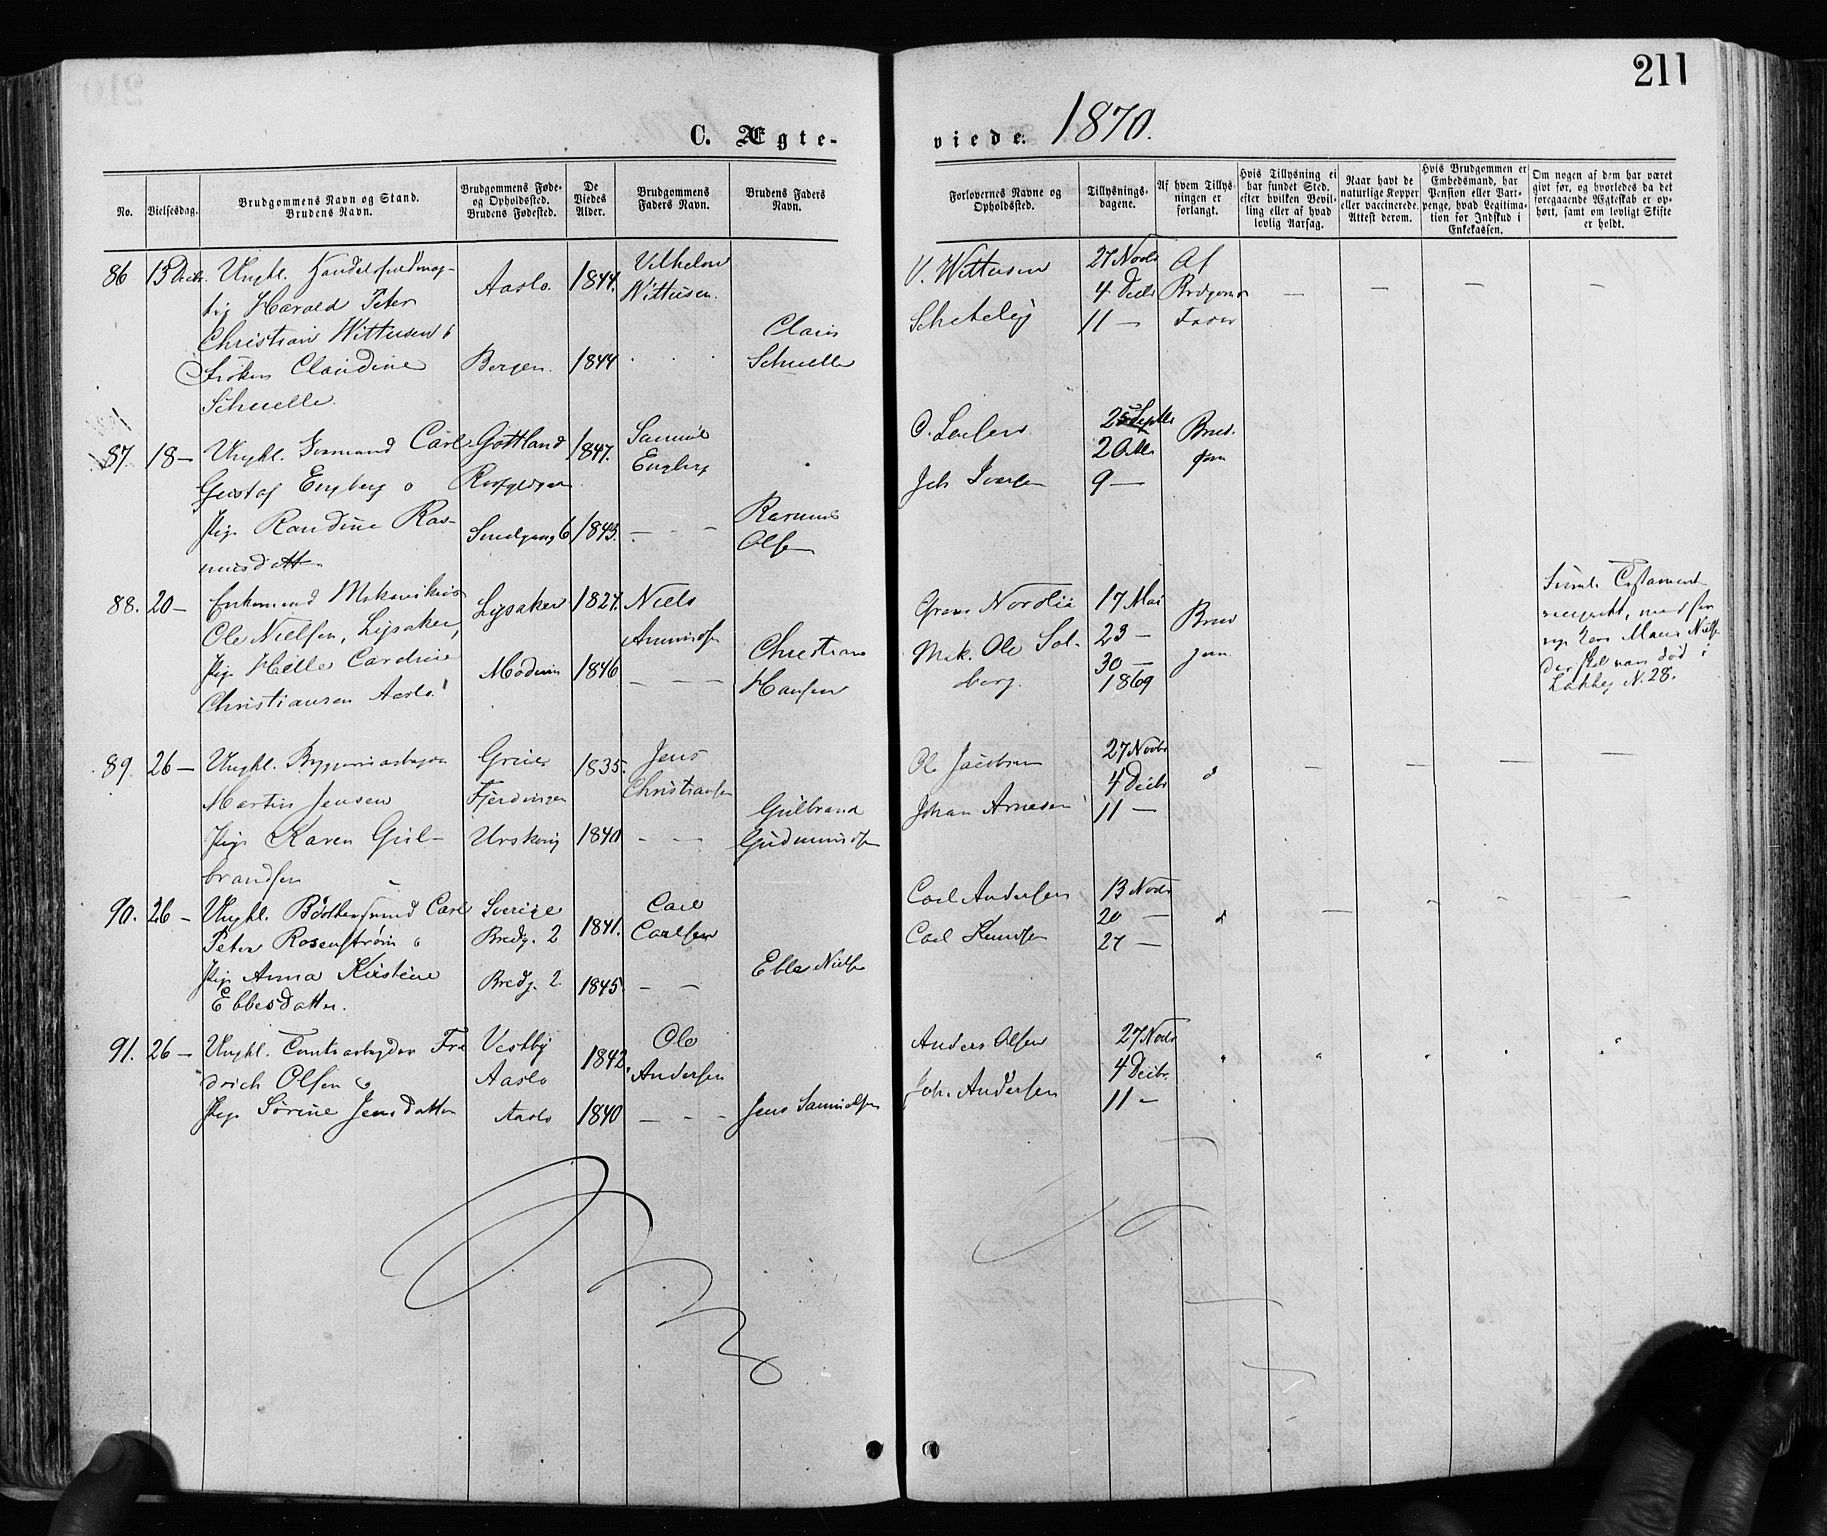 211
C. Ægte-
viede. 1870.
No.
Vielsesdag.
Brudgommens Navn og Stand.
Brudens Navn.
Brudgommens Føde-
og Opholdssted.
Brudens Fødested.
De
Viedes
Alder.
Brudgommens
Faders Navn.
Brudens Faders
Navn.
Forlovernes Navne og
Opholdssted.
Tillysnings-
dagene.
Af hvem Tillys-
ningen er
forlangt.
Hvis Tillysning ei
har fundet Sted,
efter hvilken Bevil-
ling eller af hvad
lovlig Aarsag.
Naar havt de
naturlige Kopper
eller vaccinerede.
Attest derom.
Hvis Brudgommen er
Embedsmand, har
Pension eller Vart-
penge, hvad Legitima-
tion for Indskud i
Enkekassen.
Om nogen af dem har været
gift før, og hvorledes da det
foregaaende Ægteskab er op-
hørt, samt om lovligt Skifte
er holdt.
86 13 Decbr. Ungkl. Handelsfuldmæg-
tig Harald Peter
Christian Wittusen &
Frøken Claudine
Schuelle.
Aaslo.
Bergen.
1844.
1844
Vilhelm
Wittusen.
Claus
Schuelle
V. Wittusen
Schetelig
27 Novbr
4 Decbr
11 —
Af
Brudgoms
Fader
87. 18 — Ungkl. Formand Carl
Gustaf Engberg o
Pige Randine Ras-
musdatt.
Gottland
Smedgang 6
1847.
1843.
Samuel
Engberg
Rasmus
Olsen
C. Larsen
Joh Iversen
25 Septbr
2 Octbr
9 —
Brud-
gom
88. 20 — Enkemand Mekanikus
Ole Nielsen, Lysaker,
Pige Helle Cardine
Christiansen Aaslo.
Lysaker
Modum
1827.
1846
Niels
Amundsen
Christian
Hansen
Nordlie
Mek. Ole Sol-
berg.
17 Mai
23 —
30 —
1869
Brud
gom
Testament
med
Maria Niels
død i
N. 28.
89. 26 — Ungkl. Bygningsarbeider
Martin Jensen
Pige Karen Gul-
brandsen
Grue
Fjerdingen
Urskoug
1835.
1840
Jens
Christiansen
Gulbrand
Gudmundsen
Ole Jacobsen
Johan Arnesen
27 Novbr
4 Decbr
11 —
90. 26 — Ungkl. Bødkersvend Carl
Peter Rosenstrøm o
Pige Anna Kirstine
Ebbesdatter.
Sverige
Bredg. 2
Bredg. 2
1841.
1845.
Carl
Carlsen
Ebbe Nielsen
Carl Andersen
Carl Knudsen
13 Novbr
20 —
27 —
91. 26 — Ungkl. Tomtearbeider Fre
drich Olsen o
Pige Sørine Jensdatter
Vestby
Aaslo
Aaslo
1842.
1840
Ole
Andersen
Jens Samuelsen
Anders Olsen
Joh. Andersen
27 Novbr
4 Decbr.
11 —